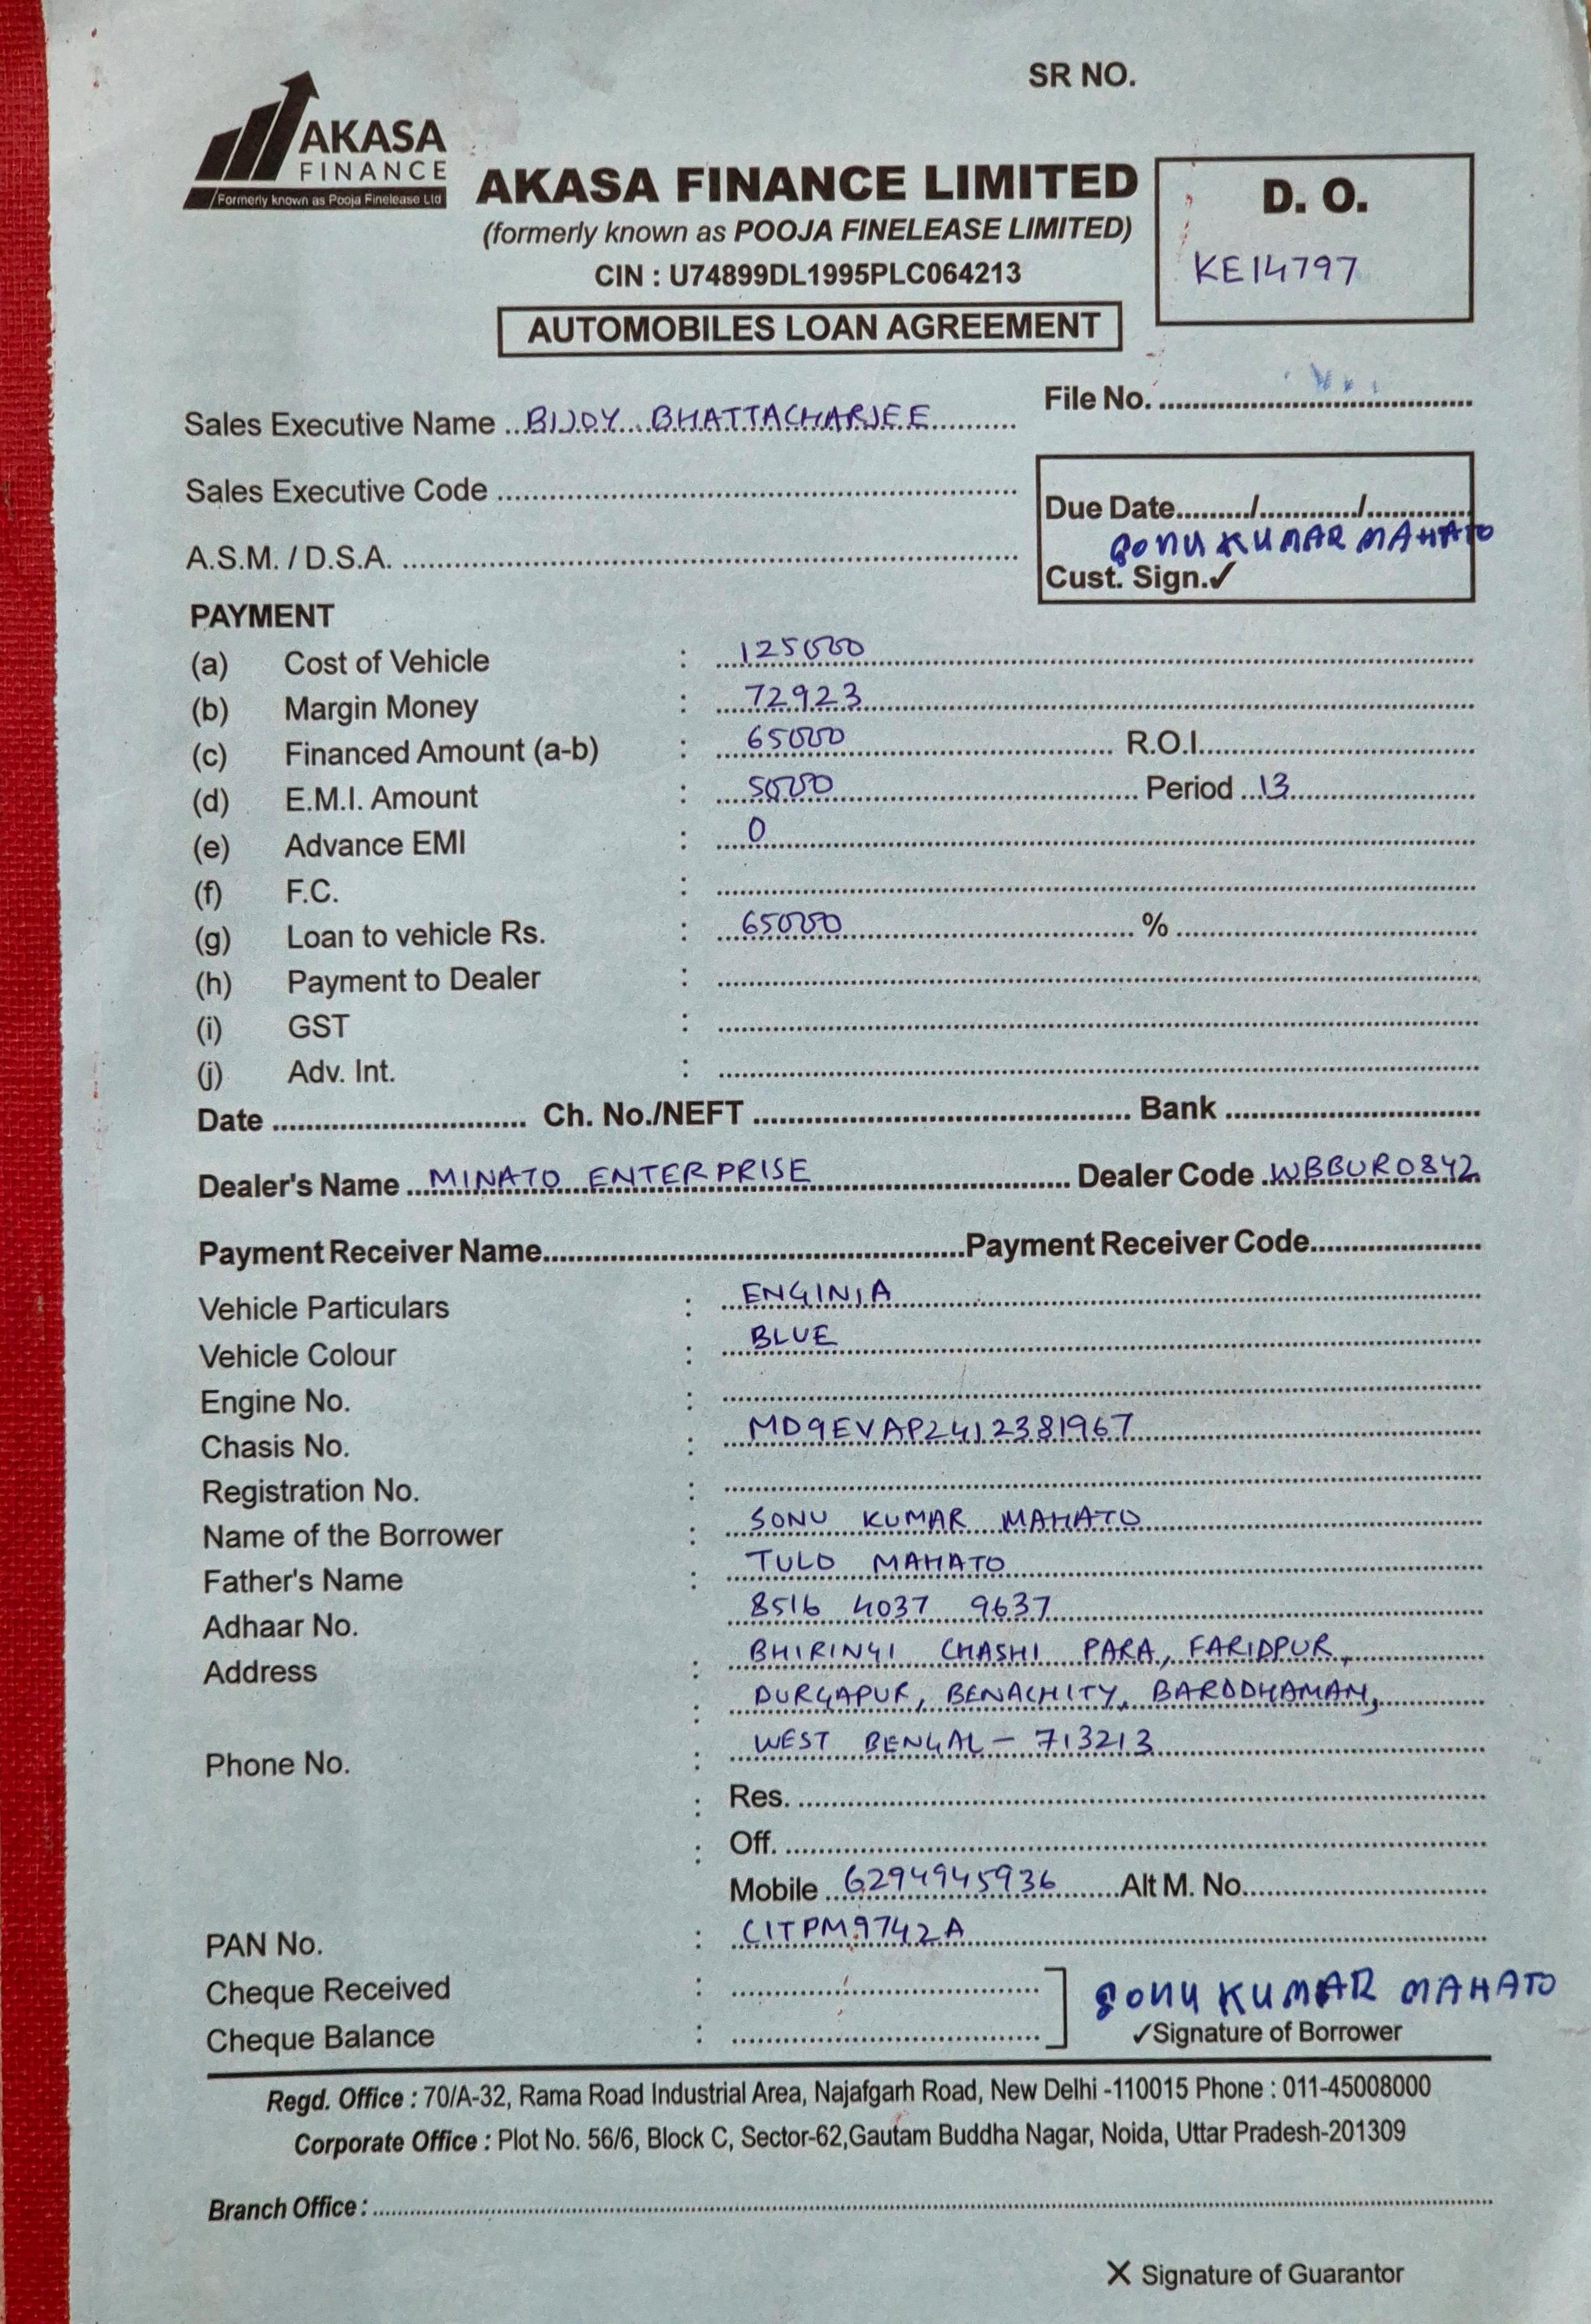 SR NO.
AKASA
FINANCE
Formerly known as Pooja Finelease Ltd
AKASA FINANCE LIMITED
(formerly known as POOJA FINELEASE LIMITED)
CIN : U74899DL1995PLC064213
AUTOMOBILES LOAN AGREEMENT
D. O.
KE14797
File No. ..........
Sales Executive Name ... BIJOY BHATTACHARJEE ..........
Sales Executive Code ..........
A.S.M. / D.S.A. ..........
Due Date........./............/............
SONU KUMAR MAHATO
Cust. Sign.✓
PAYMENT
(a) Cost of Vehicle : 125000
(b) Margin Money : 72923
(c) Financed Amount (a-b) : 65000 R.O.I...........
(d) E.M.I. Amount : 5000 Period ...13..........
(e) Advance EMI : 0
(f) F.C. : ..........
(g) Loan to vehicle Rs. : 65000 % ..........
(h) Payment to Dealer : ..........
(i) GST : ..........
(j) Adv. Int. : ..........
Date .......... Ch. No./NEFT .......... Bank ..........
Dealer's Name ... MINATO ENTERPRISE .......... Dealer Code . WBBUR0842
Payment Receiver Name..........Payment Receiver Code..........
Vehicle Particulars : ENGINIA
Vehicle Colour : BLUE
Engine No. : ..........
Chasis No. : MD9EVAP2412381967
Registration No. : ..........
Name of the Borrower : SONU KUMAR MAHATO
Father's Name : TULO MAHATO
Adhaar No. 8516 4037 9637
Address : BHIRINGI CHASHI PARA, FARIDPUR,
: DURGAPUR, BENACHITY, BARDDHAMAN,
Phone No. : WEST BENGAL - 713213
: Res. ..........
: Off. ..........
Mobile .. 6294945936 .......Alt M. No...........
PAN No. : CITPM9742A
Cheque Received : ..........
SONU KUMAR MAHATO
Cheque Balance : ..........
✓Signature of Borrower
Regd. Office : 70/A-32, Rama Road Industrial Area, Najafgarh Road, New Delhi -110015 Phone : 011-45008000
Corporate Office : Plot No. 56/6, Block C, Sector-62,Gautam Buddha Nagar, Noida, Uttar Pradesh-201309
Branch Office : ..........
X Signature of Guarantor